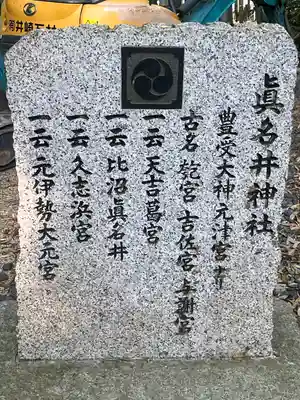 眞名井神社
豊受大神元津宮
古名 匏宮 吉佐宮 与謝宮
一云天吉葛宮
一云比沼眞名井
一云久志浜宮
一云元伊勢大元宮